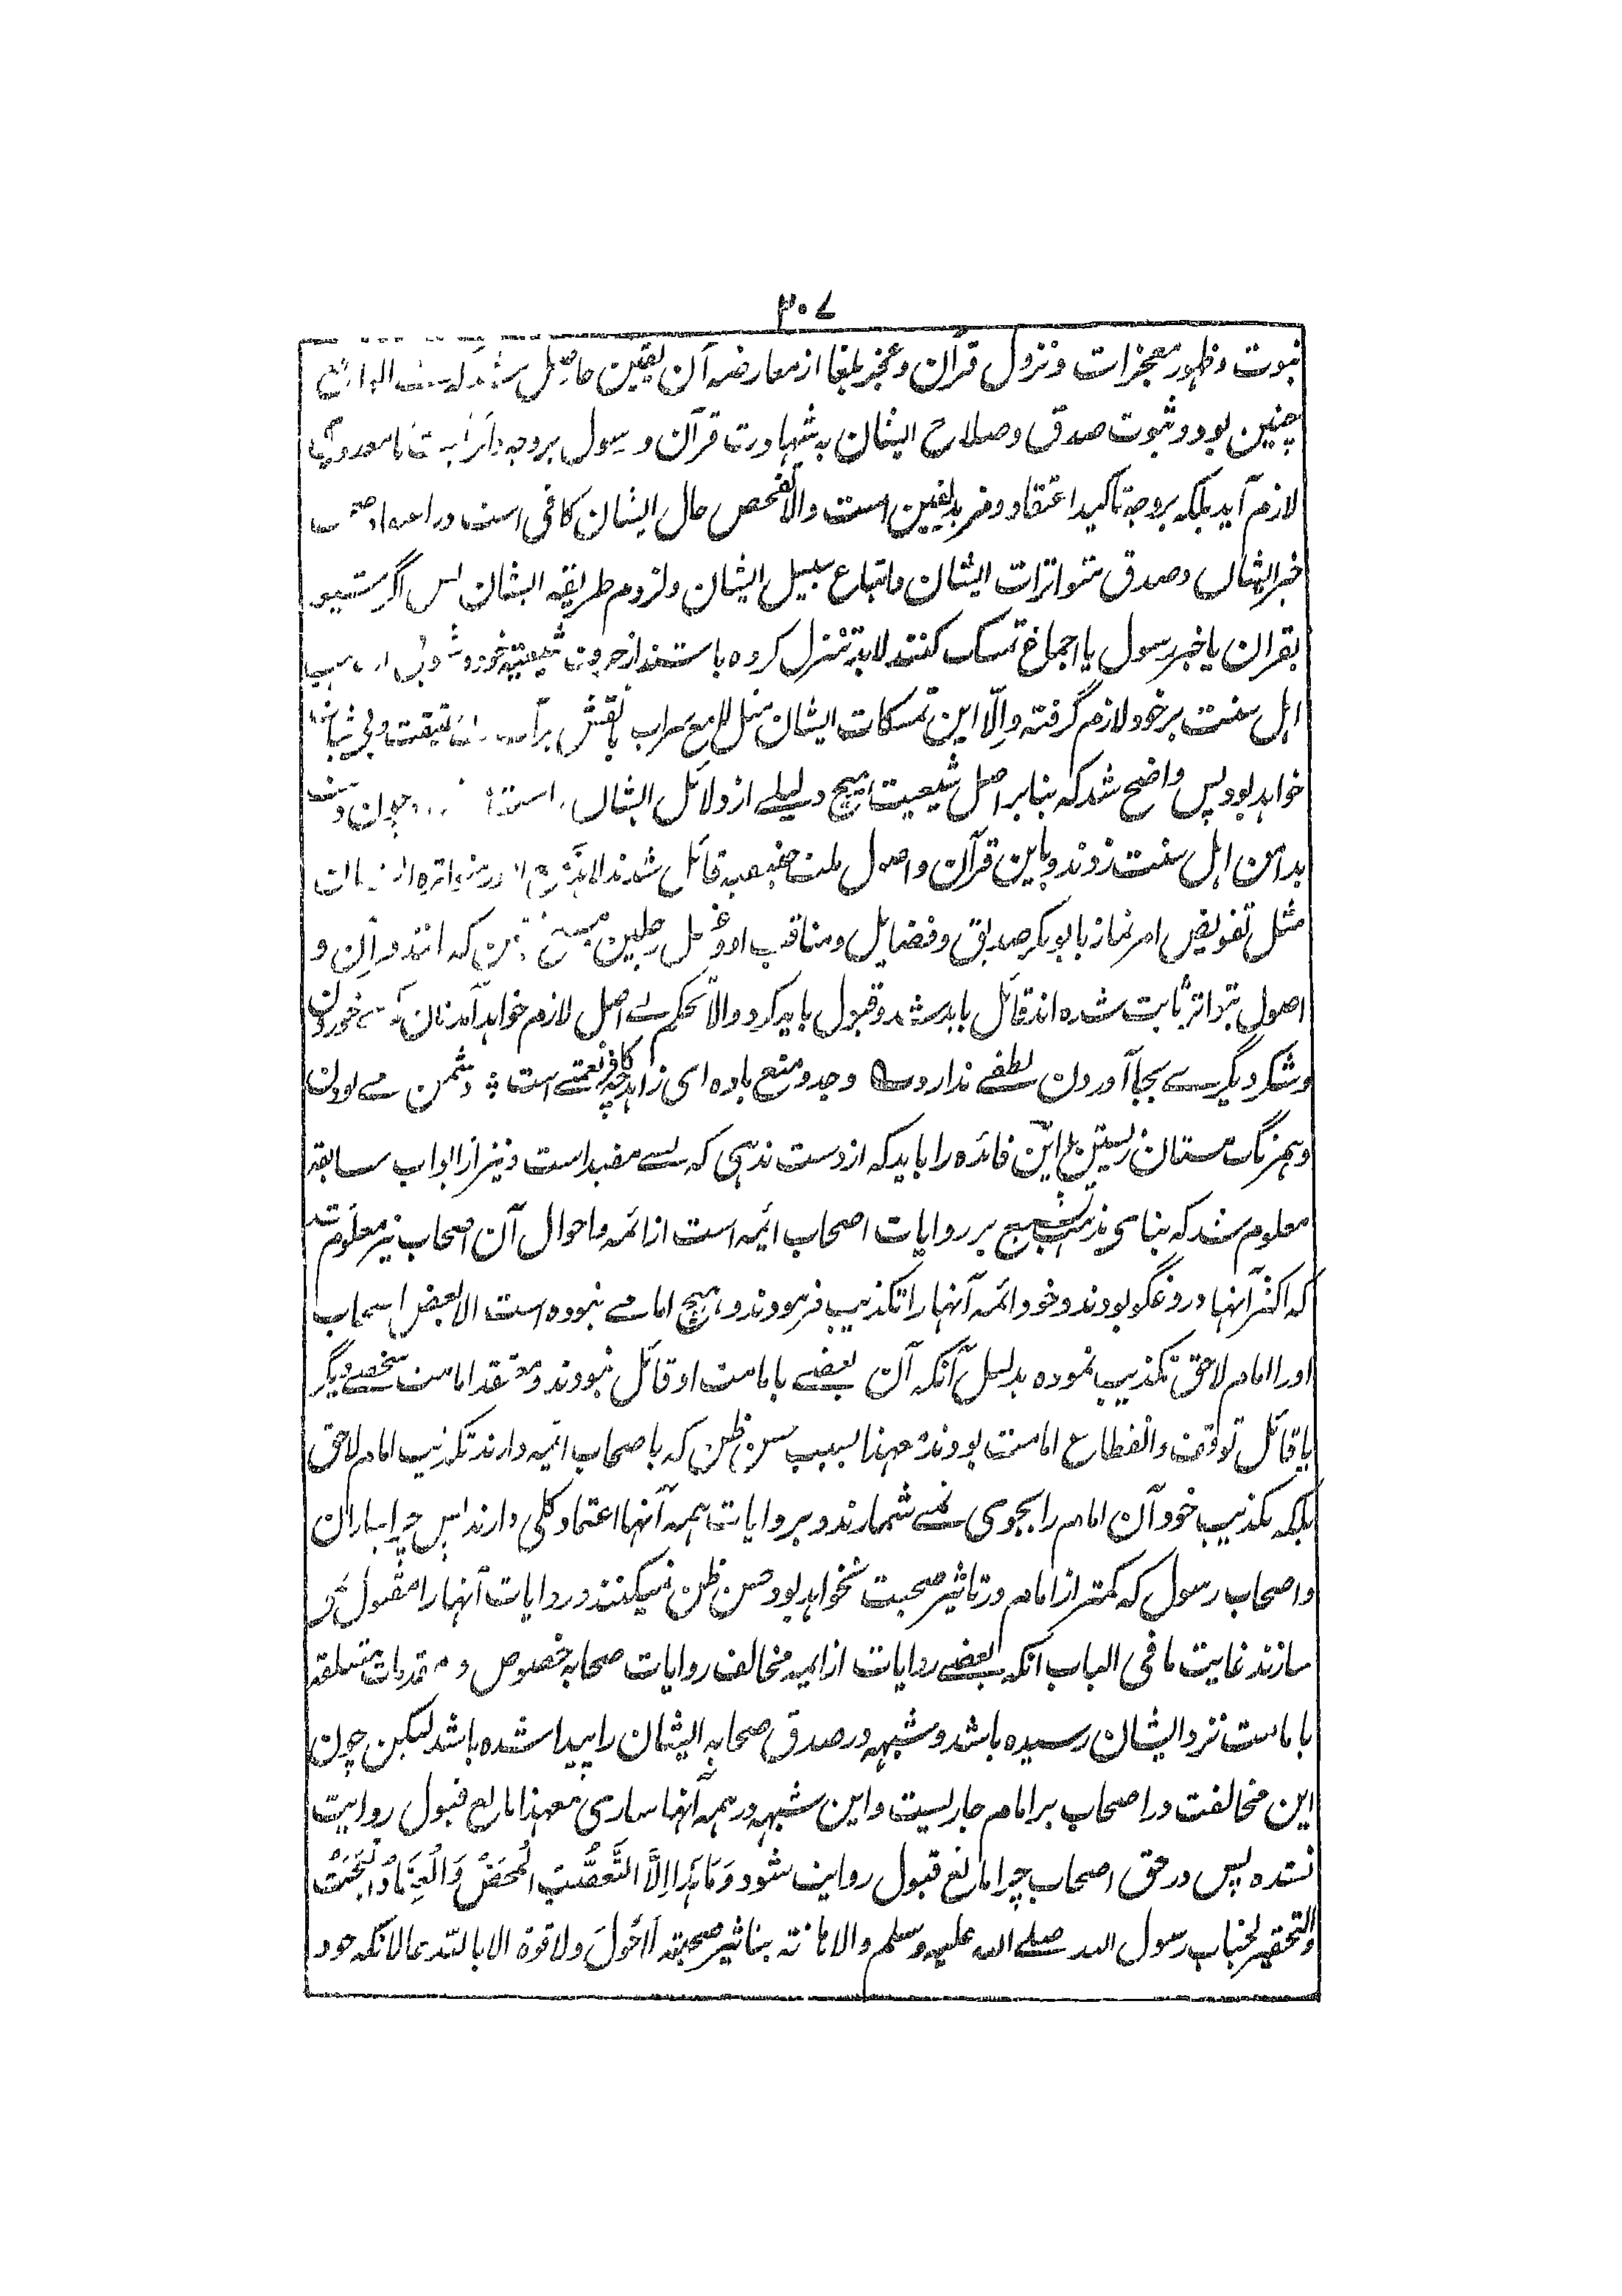 ۳۰۷
نبوت و ظهور معجزات و نزول قرآن و عجز بلغا از معارضه آن یقین حاصل
چنین بود و ثبوت صدق و صلاح ایشان به شهادت قرآن و رسول بر وجه
لازم آید بلکه بر وجه تاکید اعتقاد و مزید یقین است والا تفحص حال ایشان کافی است در
خبر ایشان و صدق متواترات ایشان و اتباع سبیل ایشان و لزوم طریقه ایشان پس اگر شیعه
بقرآن یا خبر رسول یا اجماع تمسک کنند لابد تنزل کرده باشند از
اهل سنت بر خود لازم گرفته و الّا این تمسکات ایشان مثل لامع سراب یا نقش بر آب
خواهد بود پس واضح شد که بنا بر اصل شیعیت هیچ دلیلے از دلائل ایشان
بدامن اهل سنت زدند و باین قرآن و اصول ملت حنیفیه قائل شدند لابد
مثل تفویض امر نماز بابو بکر صدیق و فضایل و مناقب او و غسل رجلین که مانند قرآن و
اصول بتواتر ثابت شده اند قائل باید شد و قبول باید کرد والّا تحکم بے اصل لازم خواهد آمد نان خوردن
و شکر دیگرے بجا آوردن لطفے ندارد ے وجد و منع باده ای زاهد چه کافر نعمتے است ؞ دشمن مے بودن
و همرنگ مستان زیستن ؞ این فائده را باید که از دست ندهی که بسے مفید است و نیز از ابواب سابقه
معلوم شد که بنای مذهب شیعه بر روایات اصحاب ائمه است از ائمه و احوال آن اصحاب نیز معلوم شد
که اکثر آنها دروغگو بودند و خود ائمه آنها را تکذیب فرمودند و هیچ امامے نبوده است الا بعض اصحاب
او را امام لاحق تکذیب نموده بدلیل آنکه آن بعضے بامامت او قائل نبودند و معتقد امامت شخصے دیگر
یا قائل توقف و انقطاع امامت بودند معهذا بسبب حسن ظن که با صحاب ائمه دارند تکذیب امام لاحق
بلکه تکذیب خود آن امام را بجوی نمے شمارند و بر روایات همه آنها اعتماد کلی دارند پس چرا بیاران
و اصحاب رسول که کمتر از امام در تاثیر صحبت نخواهد بود حسن ظن نمیکنند و روایات آنها را مقبول نمی
سازند غایت ما فی الباب آنکه بعضے روایات از ایمه مخالف روایات صحابه خصوص و مقدمات متعلقه
بامامت نزد ایشان رسیده باشد و شبهه در صدق صحابه ایشان را پیدا شده باشد لیکن چون
این مخالفت در اصحاب هر امام جاریست و این شبهه در همه آنها ساری معهذا مانع قبول روایت
نشده پس در حق اصحاب چرا مانع قبول روایت شود وَمَا هٰذا اِلَّا التَّعَصُّبُ الْمَحْضُ وَالْعِنَادُ الْبَحْتُ
والتحقیر لجناب رسول الله صلے الله علیه وسلم والاهانته بتاثیر صحبته لا حَولَ ولا قوة الا بالله حالانکه خود